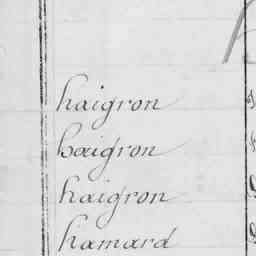 haigron
haigron
haigron
hamard